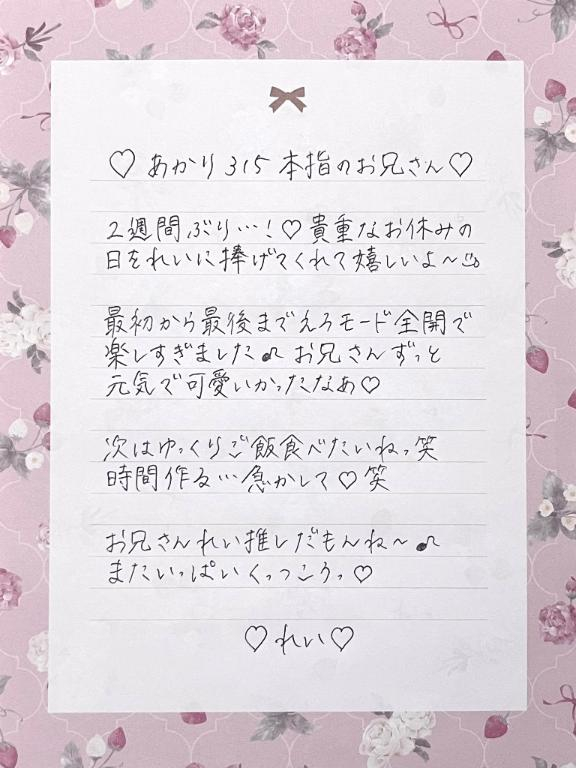 ♡ あかり 315 本指のお兄さん ♡
2週間ぶり…!♡貴重なお休みの
日をれいに捧げてくれて嬉しいよ〜
最初から最後までえろモード全開で
楽しすぎました♪ お兄さんずっと
元気で可愛いかったなあ♡
次はゆっくりご飯食べたいねっ笑
時間作る…急かして♡笑
お兄さんれい推しだもんね〜♪
またいっぱいくっつこうっ♡
♡れい♡